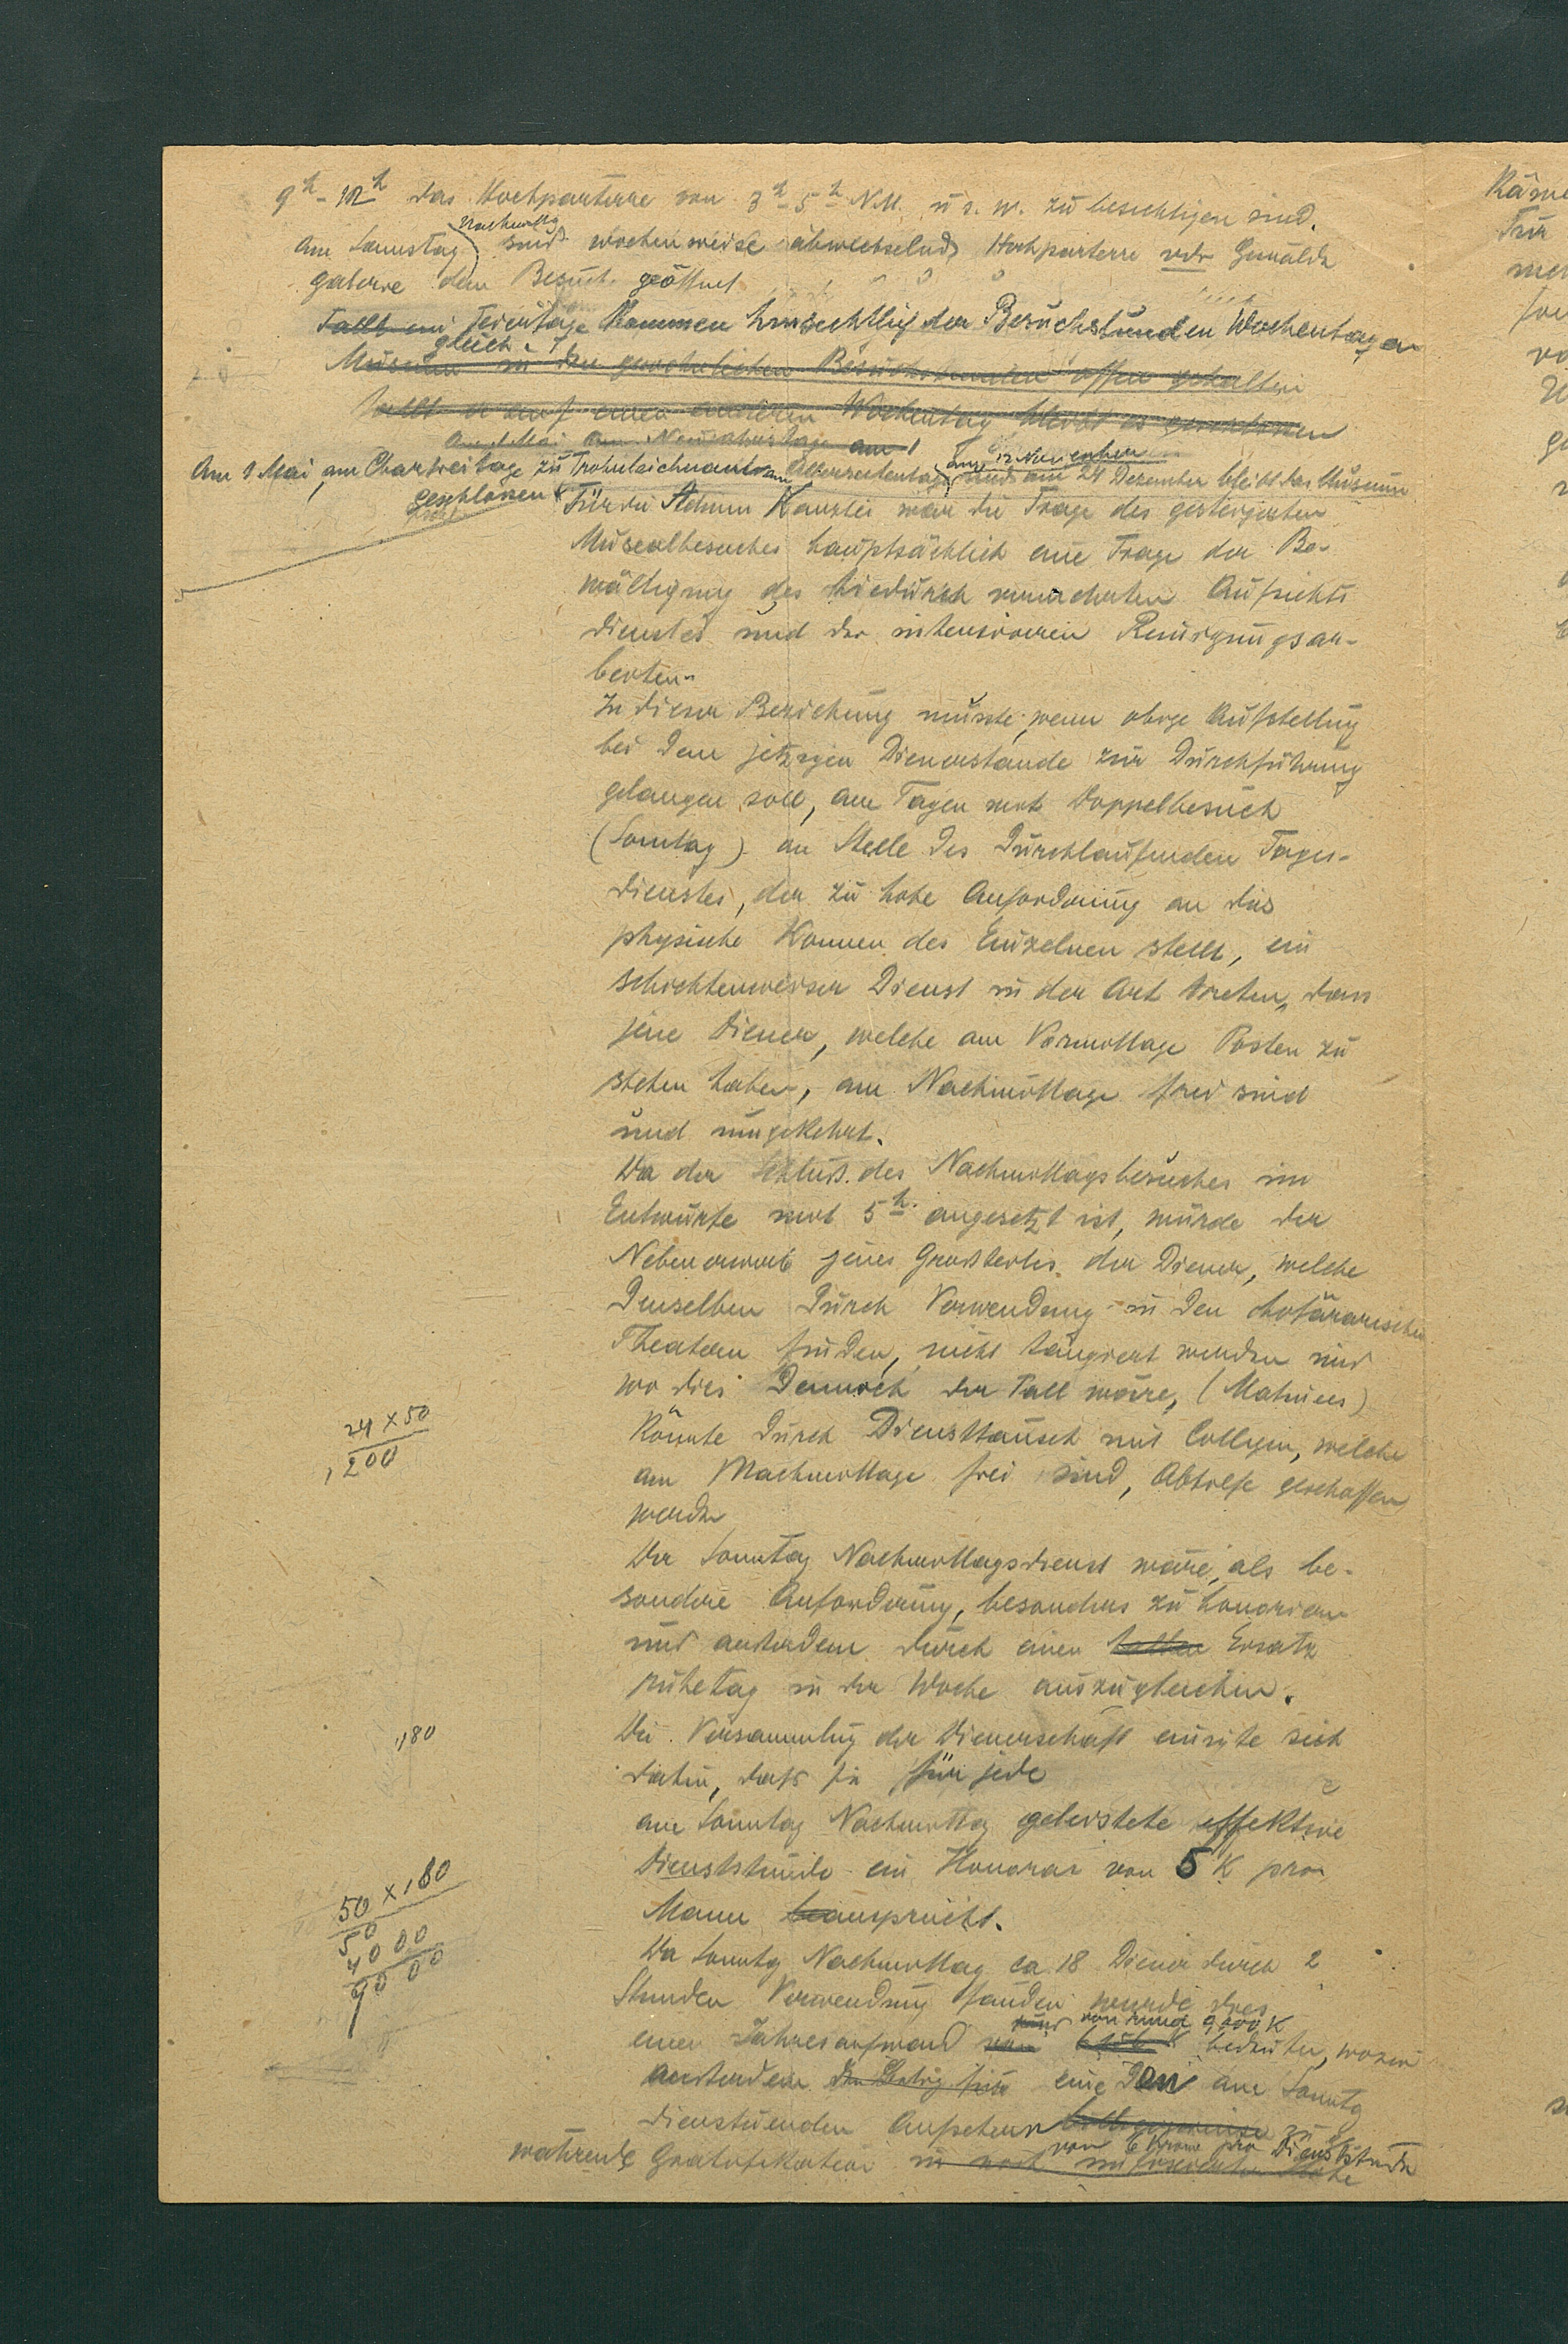 9h - 12h das Hochparterre von 3h - 5h N.M. u. s. w. zu besichtigen sind.
Nachmittg
Am Samstag sind wochenweise abwechselnd Hochparterre oder Gemälde
galerie dem Besuch geöffnet
Fällt ein Feiertage kommen hinsichtlich der Besuchstunden Wochentagen
gleich
Museum in den gewöhnlichen Besuchsstunden offen gehalten
fällt er auf einen anderen Wochentag bleibt es geschlossen
Am 1 Mai am Neujahrstage am 1
am 12 November
Am 1 Mai, am Charfreitage zu Frohnleichnam am Allerseelentag und am 24 Dezember bleibt das Museum
geschlossen
Für die Kanzlei war die Frage des gesteigerten
Musealbesuches hauptsächlich eine Frage der Be-
wältigung des hiedurch vermehrten Aufsichts
dienstes und der intensiveren Reinigungsar-
beiten.
In dieser Beziehung müsste, wenn obige Aufstellung
bei dem jetzigen Dienerstande zur Durchführung
gelangen soll, an Tagen mit Doppelbesuch
(Sonntag) an Stelle des durchlaufenden Tages-
dienstes, der zu hohe Anforderung an das
physische Können des Einzelnen stellt, ein
schichtenweiser Dienst in der Art treten, dass
jene Diener, welche am Vormittage Posten zu
stehen haben, am Nachmittage frei sind
und umgekehrt.
Da der Schluß des Nachmittagsbesuches im
Entwurfe mit 5h angesetzt ist, würde der
Nebenerwerb jenes Großteiles der Diener, welche
denselben durch Verwendung in den hofärarischen
Theatern finden, nicht tangiert werden und
wo dies dennoch der Fall wäre, (Matinees)
könnte durch Diensttausch mit Collegen, welche
am Nachmittage frei sind, Abhilfe geschaffen
werden
24 x 50
1200
Der Sonntag Nachmittagsdienst wäre, als be-
sondere Anforderung, besonders zu honorieren
und außerdem durch einen halben Ersatz
ruhetag in der Woche auszugleichen.
Die Versammlung der Dienerschaft einigte sich
dahin, dass sie für jede
180
am Sonntag Nachmittag geleistete effektive
Dienststunde ein Honorar von 5 K pro
Mann beansprucht.
50 x 180
50
4000
9000
Da Sonntg Nachmittag ca 18 Diener durch 2
Stunden Verwendung fänden würde dies
von rund 9,000 K
einen Jahresaufwand von bedeuten, wozu
außerdem eine den am Sonntg
diensttuenden Aufsehern zu ge
von 6 Kronen pro Dienststunde
währende Gratifikation in noch Höhe